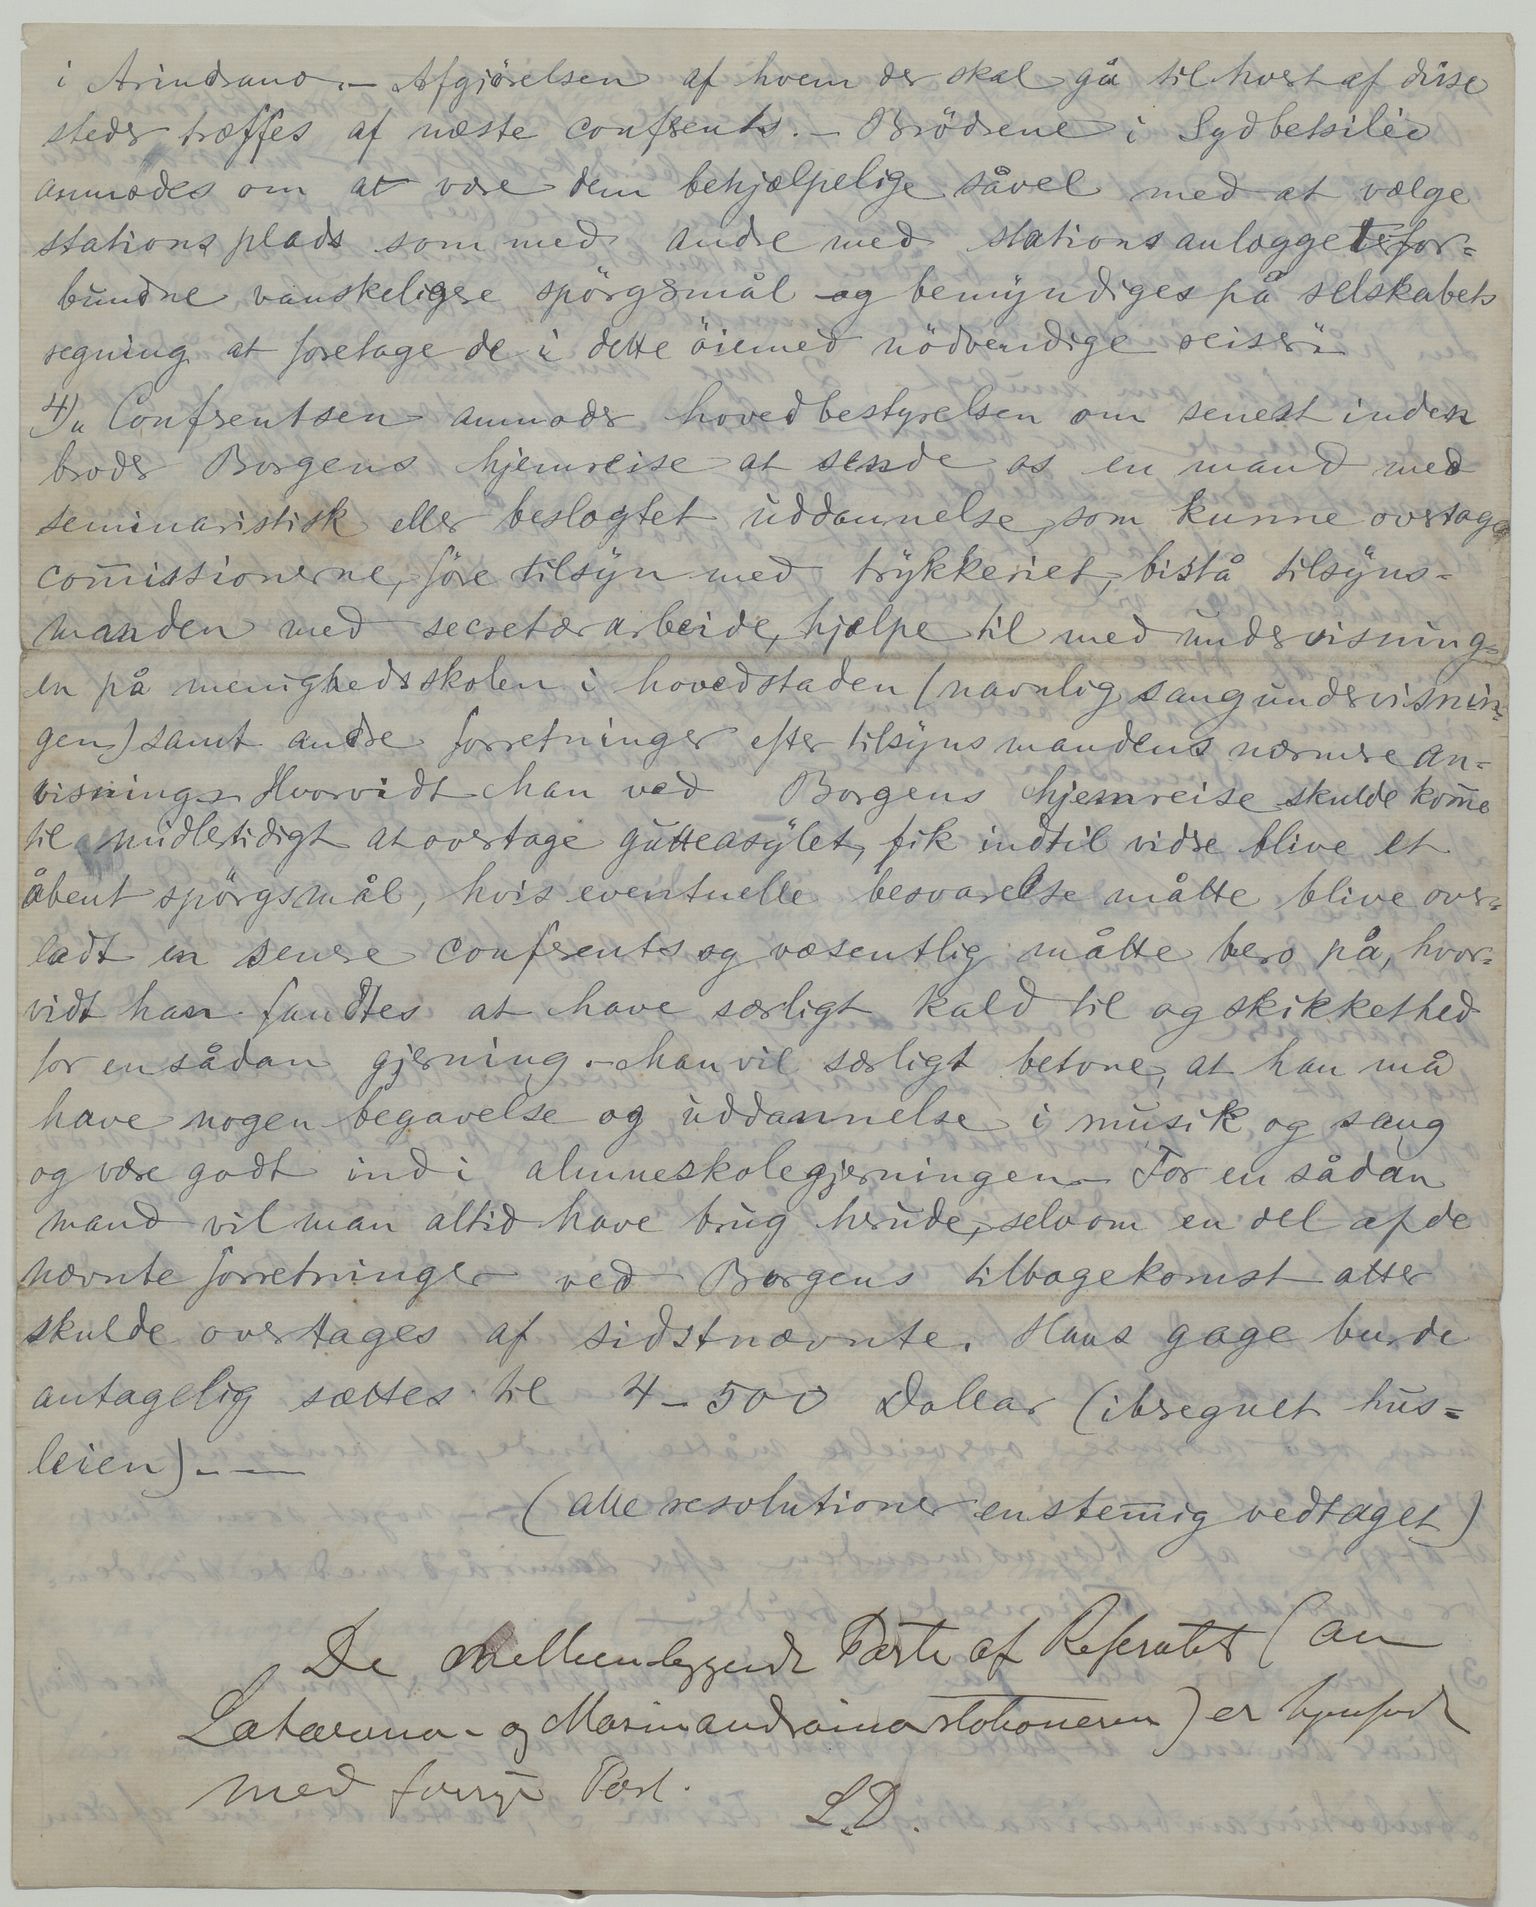 i Arindrano. – Afgjörelsen af hvem der skal gå til hvert af disse
steder træffes af næste conferents. – Brödrene i Sydbetsileo
anmodes om at være dem behjælpelige såvel med at vælge
stationsplads som med andre med stationsanlægget for=
bundne vanskeligere spörgsmål og bemyndiges på selskabets
regning at foretage de i dette öiemed nödvendige reiser."
4) "Conferentsen anmoder hovedbestyrelsen om senest inden
broder Borgens hjemreise at sende os en mand med
seminaristisk eller beslægtet uddannelse, som kunne overtage
com̅issionerne, före tilsyn med trykkeriet, bistå tilsyns=
manden med secretærarbeide, hjælpe til med undervisning=
en på menighedsskolen i hovedstaden (navnlig sangundervisnin=
gen) samt andre forretninger efter tilsynsmandens nærmere an=
visning. Hvorvidt han ved Borgens hjemreise skulde kom̅e
til midlertidigt at overtage gutteasylet, fik indtil vidre blive et
åbent spörgsmål, hvis eventuelle besvarelse måtte blive over=
ladt en senere conferents og væsentlig måtte bero på, hvor=
vidt han fandtes at have særligt kald til og skikkethed
for en sådan gjerning. – Man vil særligt betone, at han må
have nogen begavelse og uddannelse i musik og sang
og være godt ind i almueskolegjerningen. For en sådan
mand vil man altid have brug herude, selv om en del af de
nævnte forretninger ved Borgens tilbagekomst atter
skulde overtages af sidstnævnte. Hans gage burde
antagelig sættes til 4–500 Dollar (iberegnet hus=
leien). –
(alle resolutioner enstem̅ig vedtaget)
De mellemliggende Parti af Referatet (an
og Masinandraina stationerne) er hjemsendt
med forrige Post.
L.D.